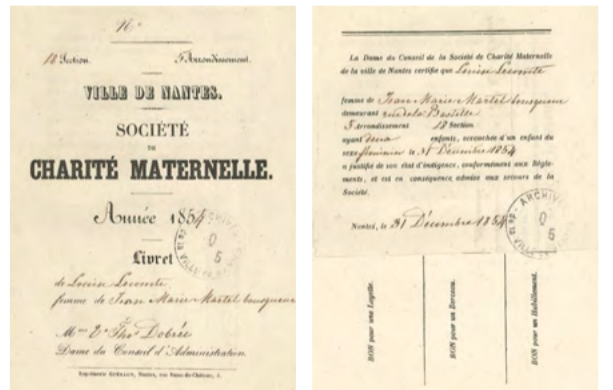 N.°
18 Section. 5 Arrondissement.
VILLE DE NANTES.
SOCIÉTÉ
DE
CHARITÉ MATERNELLE.
Année 1854
Livret
de Louise Lecomte
femme de Jean Marie Martel
Mme Th. Dobrée
Dame du Conseil d'Administration.
Nantes,
La Dame du Conseil de la Société de Charité Maternelle
de la ville de Nantes certifie que Louise Lecomte
femme de Jean Marie Martel
demeurant rue de la Bastille
5 Arrondissement 18 Section
ayant deux enfants, accouchée d'un enfant du
sexe féminin le 31 Décembre 1854
a justifié de son état d'indigence, conformément aux Règle-
ments, et est en conséquence admise aux secours de la
Société.
Nantes, le 31 Décembre 1854
ARCHIV
VILLE
0
5
BON pour une Layette.
BON pour un Berceau.
BON pour un Habillement.